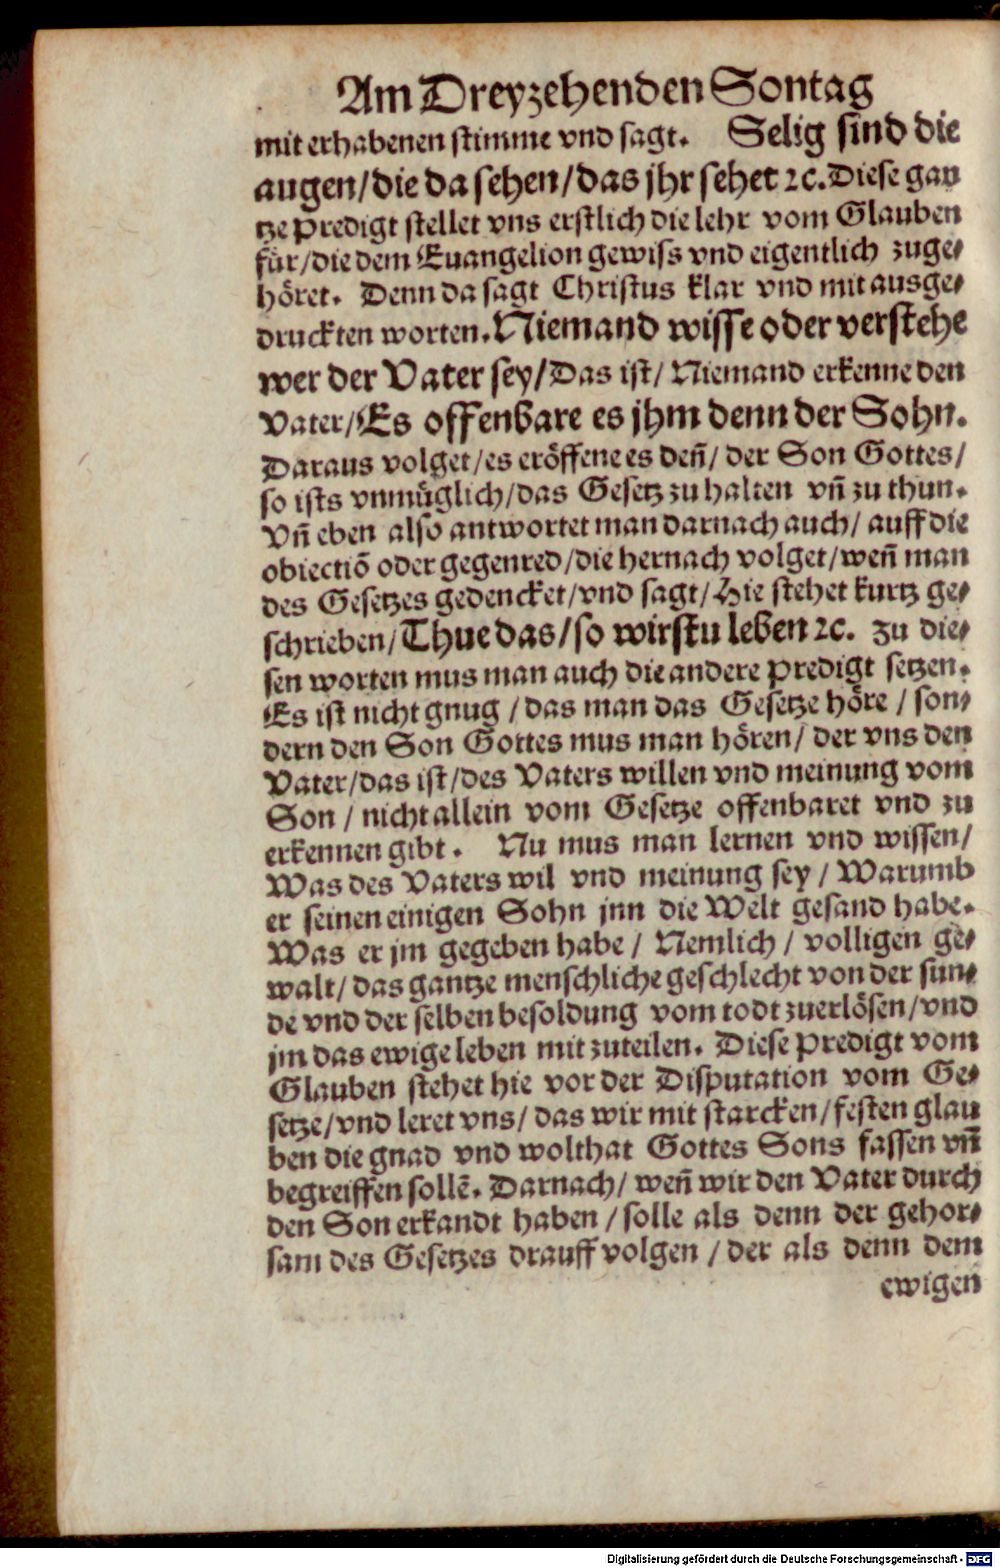 Am Dreyzehenden Sontag
mit erhabenen stimme vnd sagt. Selig sind die
augen/die da sehen/das jhr sehet ꝛc. Diese gan
tze Predigt stellet vns erstlich die lehr vom Glauben
für/die dem Euangelion gewiss vnd eigentlich zuge⸗
höret. Denn da sagt Christus klar vnd mit ausge⸗
druckten worten. Niemand wisse oder verstehe
wer der Vater sey/Das ist/ Niemand erkenne den
Vater/Es offenbare es jhm denn der Sohn.
Daraus volget/es eröffene es deñ/ der Son Gottes/
so ists vnmüglich/das Gesetz zu halten vñ zu thun.
Vñ eben also antwortet man darnach auch/ auff die
obiectiõ oder gegenred/die hernach volget/weñ man
des Gesetzes gedencket/vnd sagt/Hie stehet kurtz ge⸗
schrieben/Thue das/so wirstu leben ꝛc. Zu die⸗
sen worten mus man auch die andere Predigt setzen.
Es ist nicht gnug / das man das Gesetze höre / son⸗
dern den Son Gottes mus man hören/ der vns den
Vater/das ist/des Vaters willen vnd meinung vom
Son / nicht allein vom Gesetze offenbaret vnd zu
erkennen gibt. Nu mus man lernen vnd wissen/
Was des Vaters wil vnd meinung sey / Warumb
er seinen einigen Sohn jnn die Welt gesand habe.
Was er jm gegeben habe / Nemlich / volligen ge⸗
walt/ das gantze menschliche geschlecht von der sun⸗
de vnd der selben besoldung vom todt zuerlösen/vnd
jm das ewige leben mit zuteilen. Diese Predigt vom
Glauben stehet hie vor der Disputation vom Ge⸗
setze/vnd leret vns/ das wir mit starcken/festen glau
ben die gnad vnd wolthat Gottes Sons fassen vñ
begreiffen sollē. Darnach/ weñ wir den Vater durch
den Son erkandt haben / solle als denn der gehor⸗
sam des Gesetzes drauff volgen / der als denn dem
ewigen
Digitalisierung gefördert durch die Deutsche Forschungsgemeinschaft - DFG